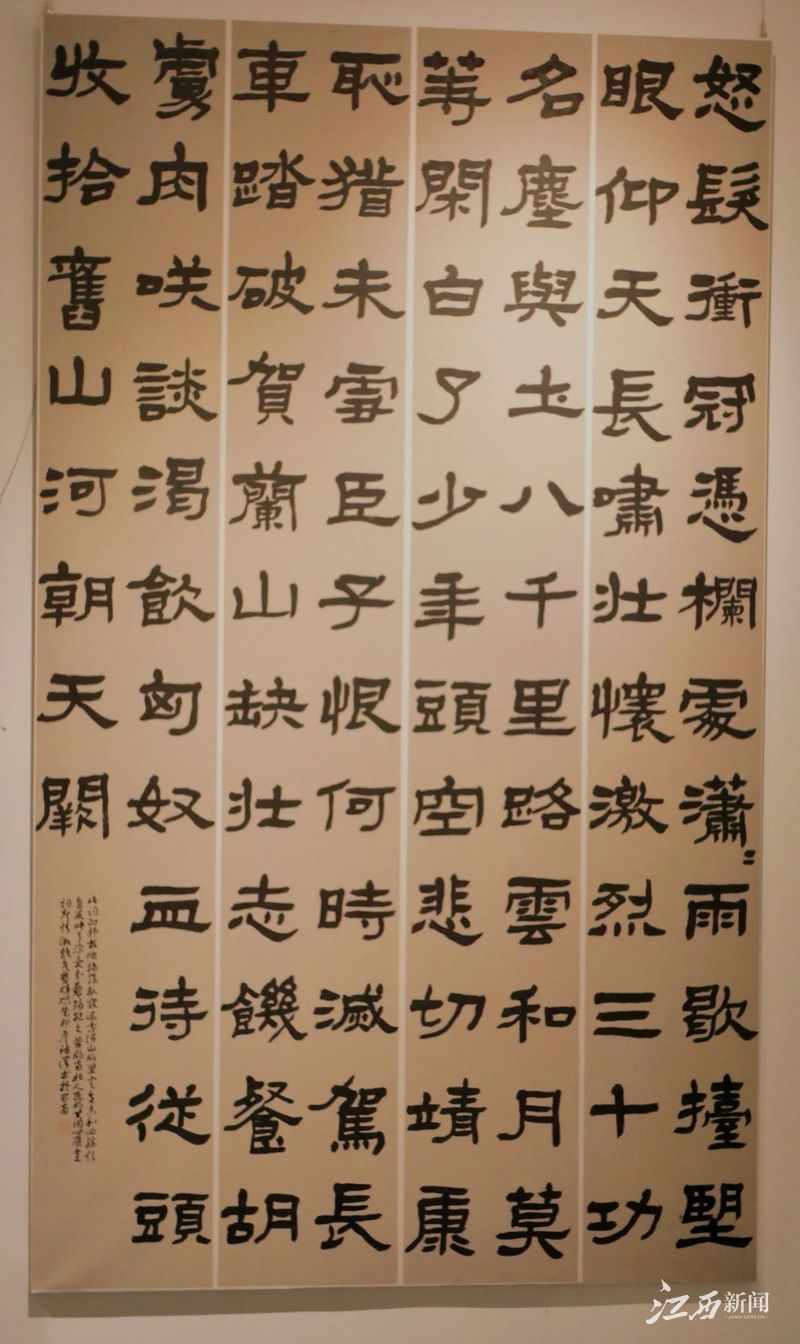 怒髮衝冠憑欄處瀟〻雨歇擡望
眼仰天長嘯壯懷激烈三十功
名塵與土八千里路雲和月莫
等閑白了少年頭空悲切靖康
恥猶未雪臣子恨何時滅駕長
車踏破賀蘭山缺壯志饑餐胡
虜肉咲談渴飲匈奴血待從頭
收拾舊山河朝天闕
江西新闻